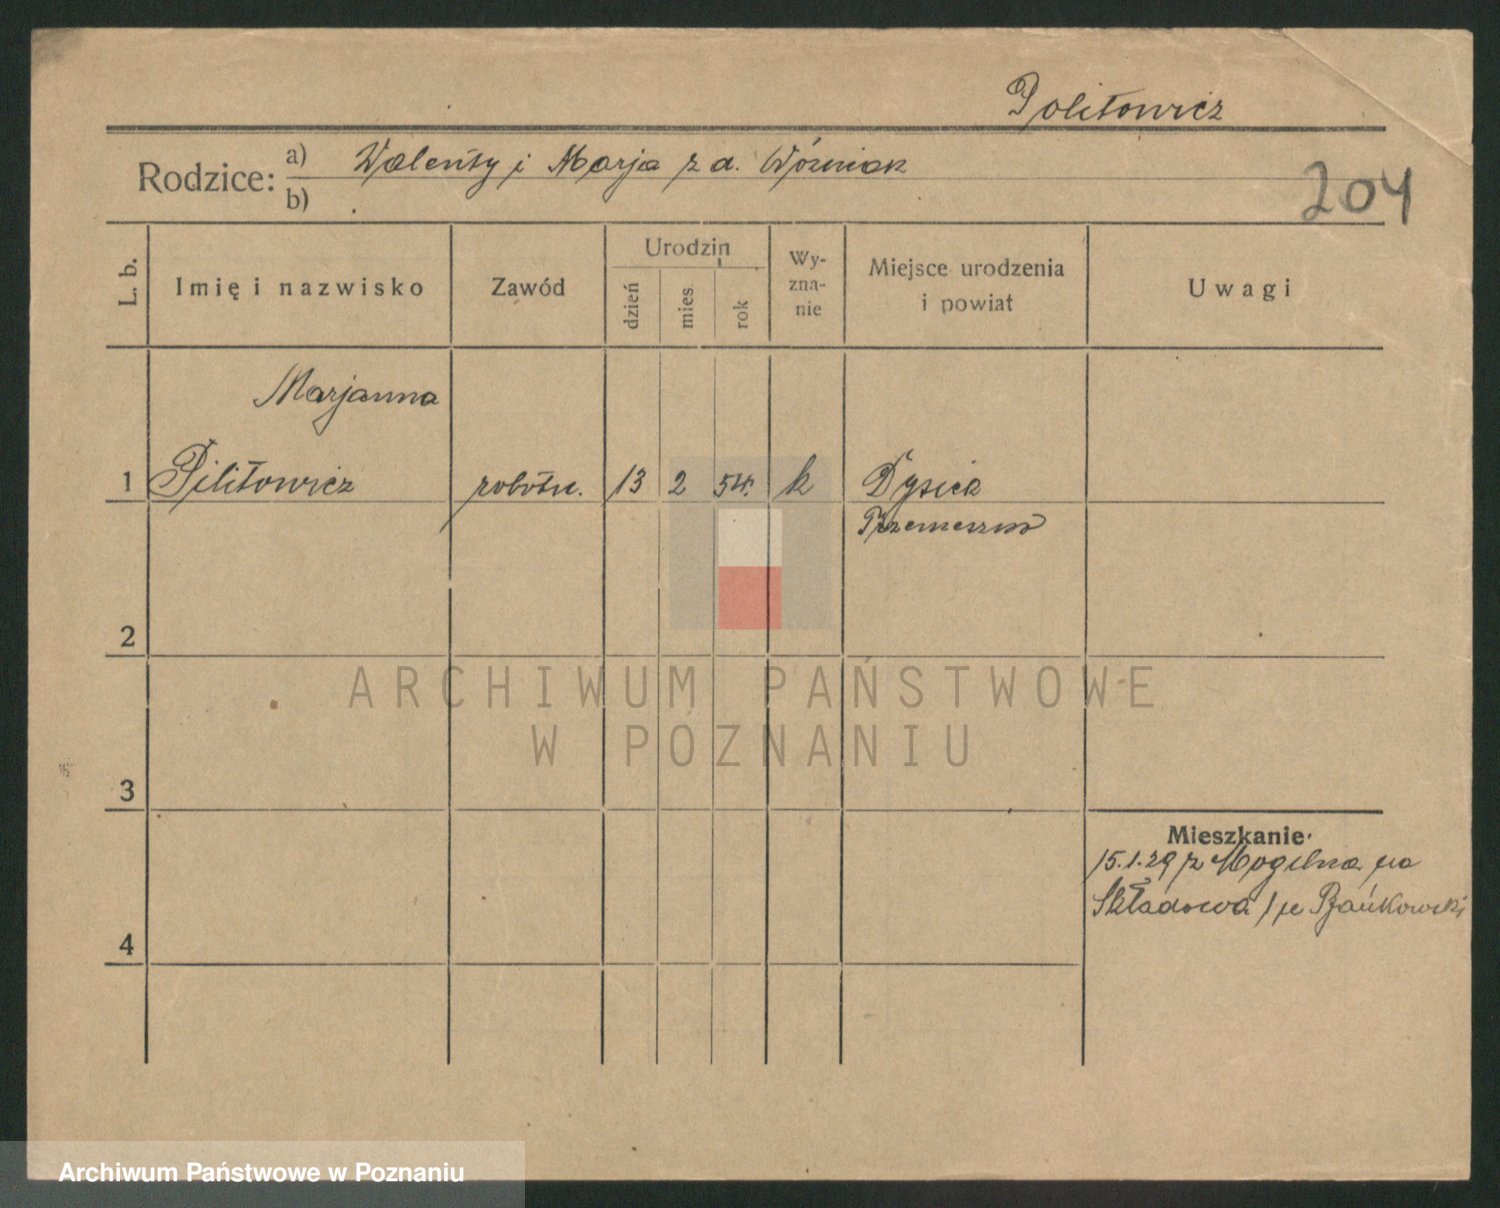 Politowicz
Rodzice: a) Walenty i Marja z d. Woźniak
b)
204
L. b.
Imię i nazwisko
Zawód
Urodzin
dzień
mies.
rok
Wy-
zna-
nie
Miejsce urodzenia
i powiat
Uwagi
Marjanna
1 Pilitowicz robotn. 13 2 54. k
Trzemeszno
2
3
4
Mieszkanie
15.1.29 z Mogilna na
Składowa
ARCHIWUM PAŃSTWOWE
W POZNANIU
Archiwum Państwowe w Poznaniu